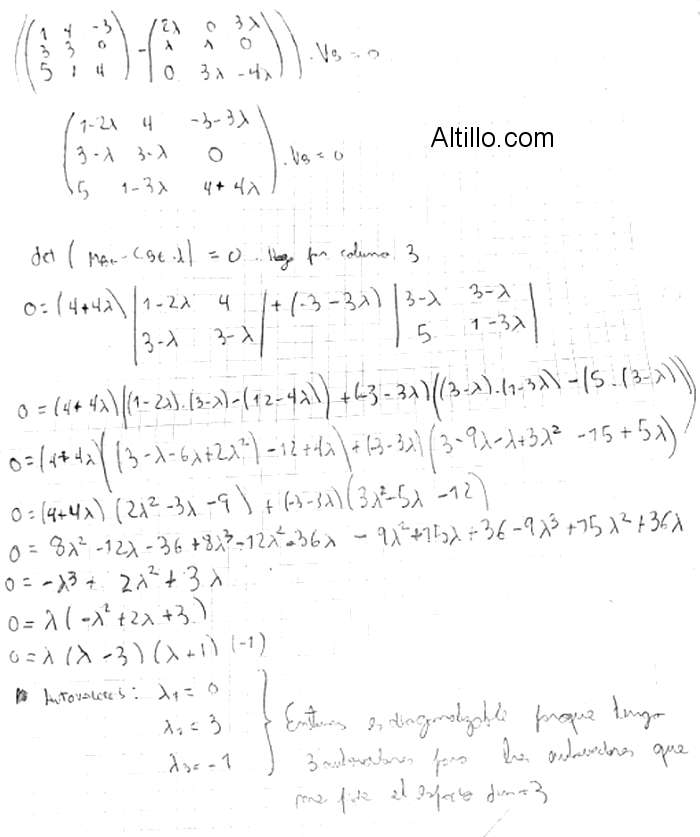 ((1 4 -3
3 3 0
5 1 4) - (2λ 0 3λ
λ λ 0
0 3λ -4λ)) . VB = 0
(1-2λ 4 -3-3λ
3-λ 3-λ 0
5 1-3λ 4+4λ) . VB = 0
Altillo.com
det ( - CBE.λ) = 0 Hago por columna 3
0=(4+4λ) |1-2λ 4
3-λ 3-λ| + (-3-3λ) |3-λ 3-λ
5 1-3λ|
0=(4+4λ)((1-2λ).(3-λ)-(12-4λ)) + (-3-3λ)((3-λ).(1-3λ)-(5.(3-λ)))
0=(4+4λ)((3-λ-6λ+2λ²)-12+4λ)+(-3-3λ)(3-9λ-λ+3λ²-15+5λ)
0=(4+4λ)(2λ²-3λ-9)+(-3-3λ)(3λ²-5λ-12)
0=8λ²-12λ-36+8λ³-12λ²-36λ-9λ²+15λ+36-9λ³+15λ²+36λ
0=-λ³+2λ²+3λ
0=λ(-λ²+2λ+3)
0=λ(λ-3)(λ+1)(-1)
Autovalores: λ1=0
λ2=3
λ3=-1
Entonces es diagonalizable porque tengo
3 autovalores para los autovectores que
me pide el espacio dim=3